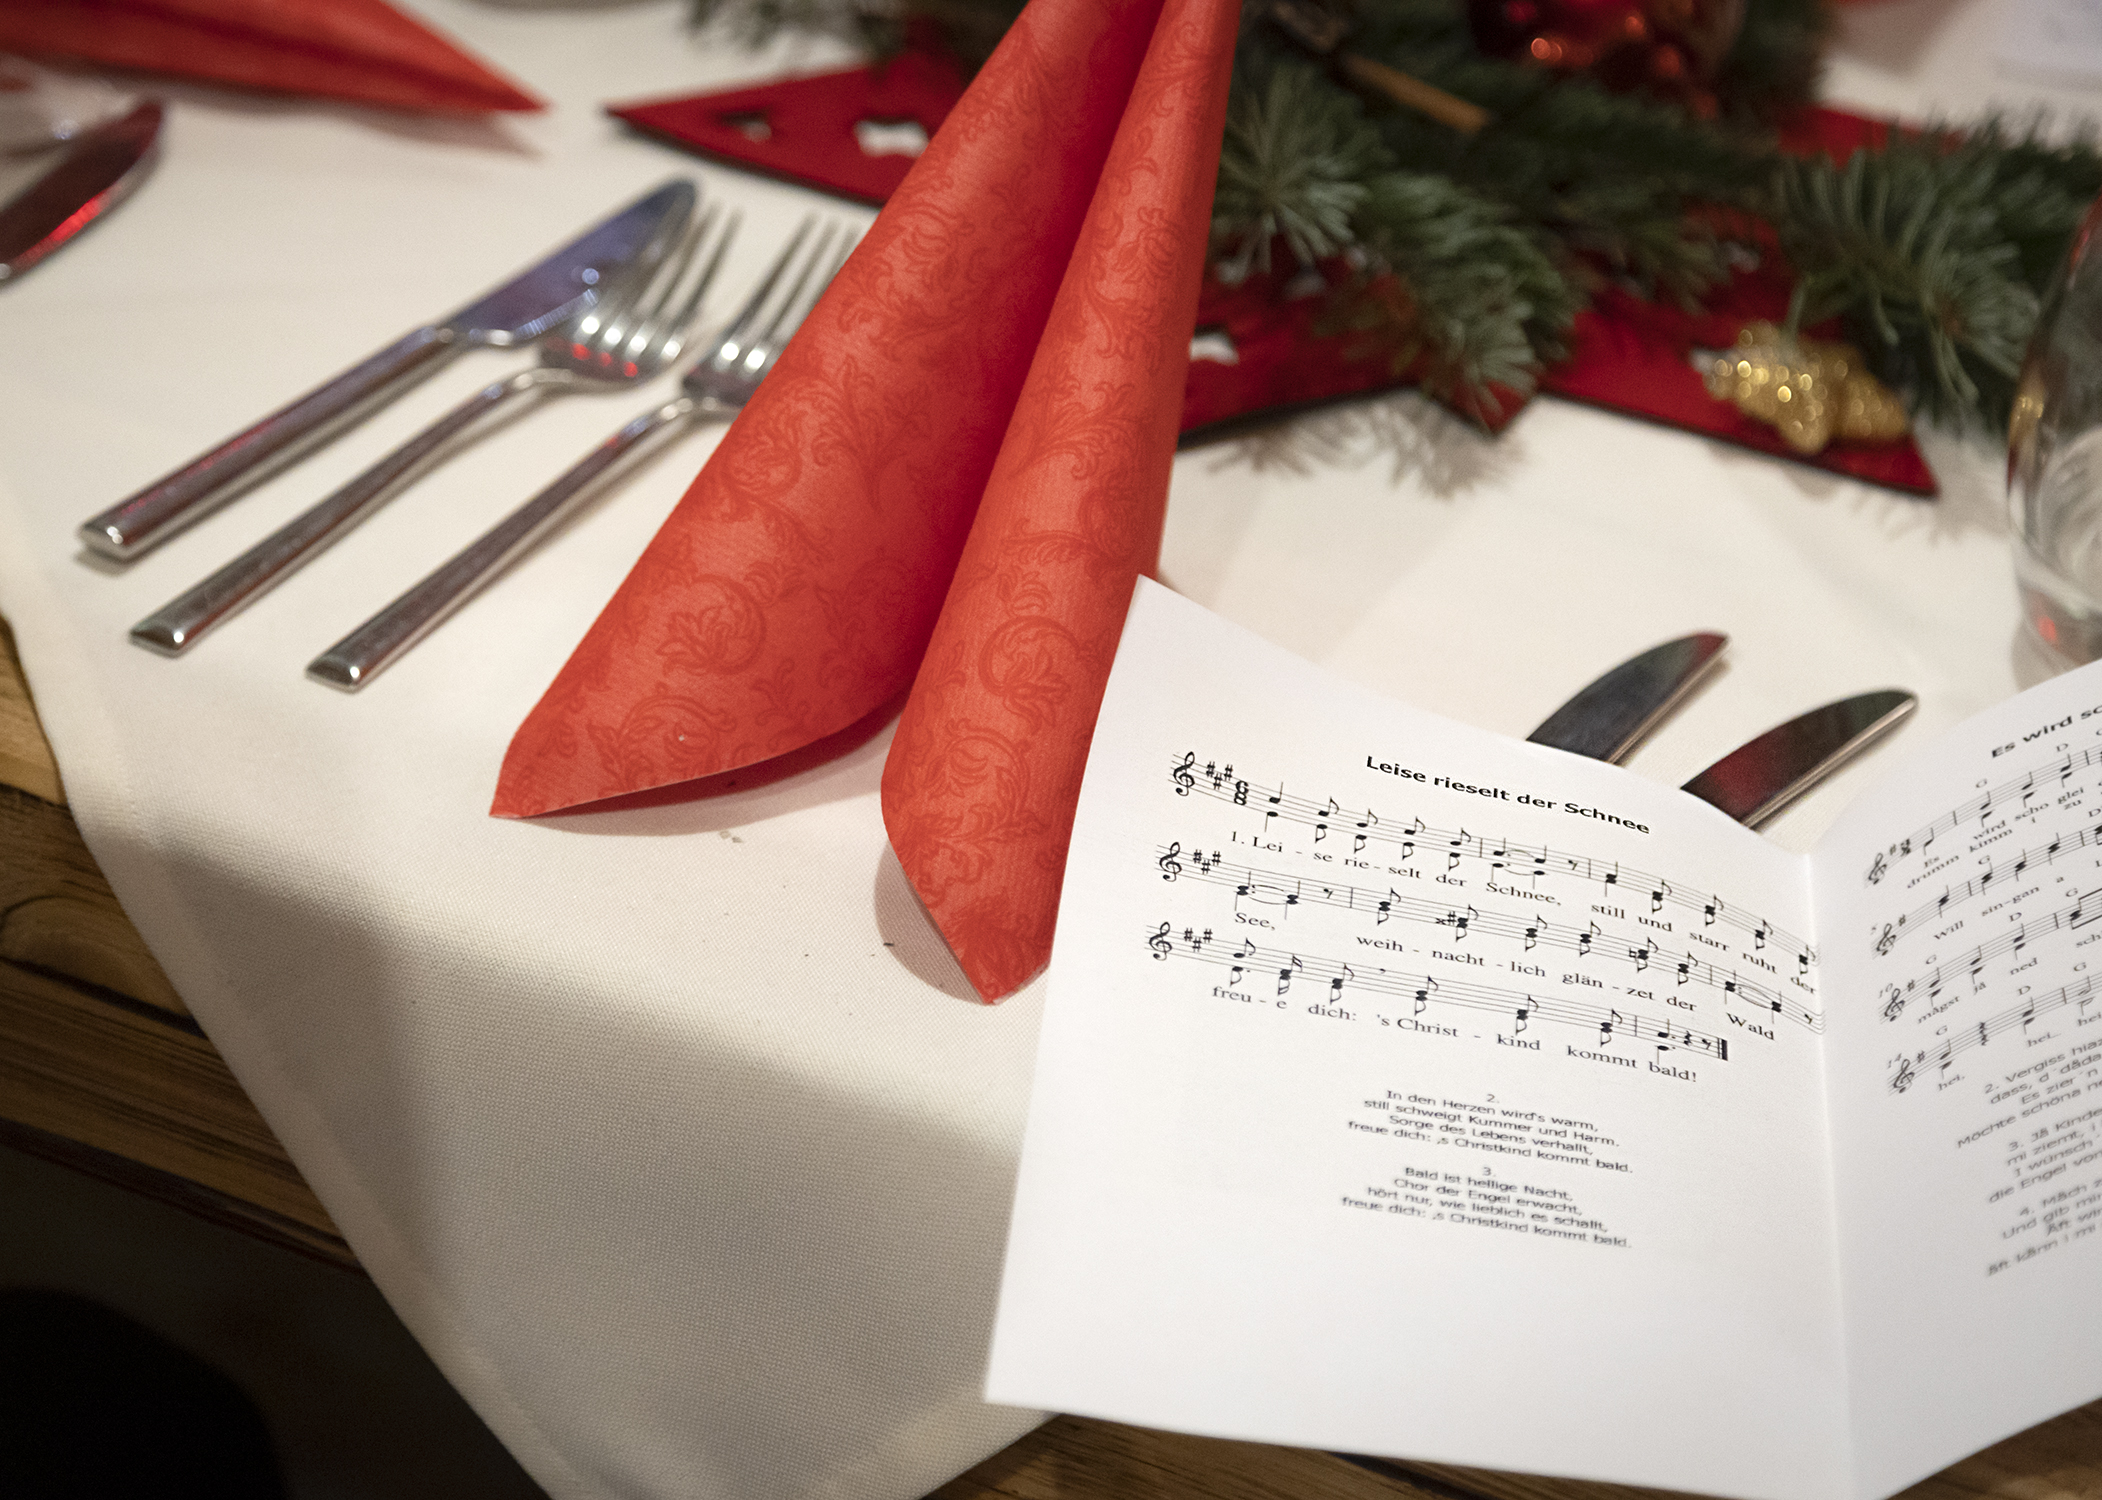 Leise rieselt der Schnee
1. Lei - se rie - selt der Schnee, still und starr ruht der
See, weih - nacht - lich glän - zet der Wald
freu - e dich: 's Christ - kind kommt bald!
2.
In den Herzen wird's warm,
still schweigt Kummer und Harm,
Sorge des Lebens verhallt,
freue dich: ‚s Christkind kommt bald.
3.
Bald ist heilige Nacht,
Chor der Engel erwacht,
hört nur, wie lieblich es schallt,
freue dich: ‚s Christkind kommt bald.
Es wird sc
G D
Es wird scho glei
drumm kimm i zu
G D
Will sin-gan a
G D G
mågst jå ned sch
G D G
hei, hei, hei
2. Vergiss hiaz
dass, d´ dåda
Es zier´n
Möchte schöna ne
3. Jå Kinde
mi ziemt, i
I wünsch
die Engel von
4. Måch z
Und gib mir
Åft wir
åft kånn i mi